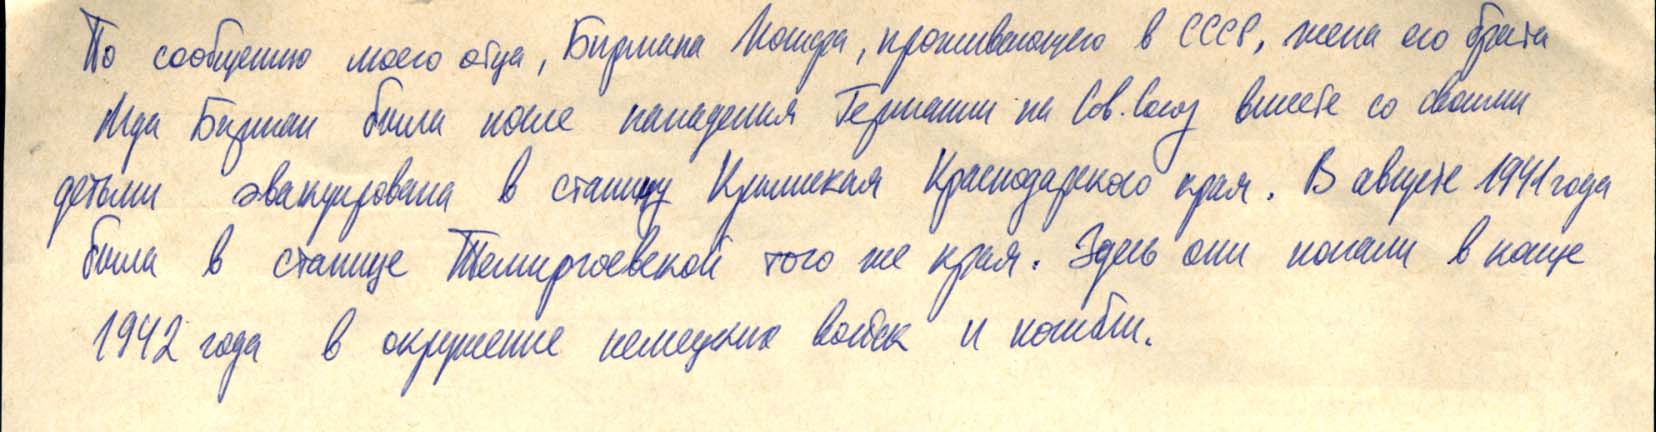 По сообщению моего отца, Бирмана, проживающего в СССР, жена его брата
Ида Бирман была после нападения Германии на Сов. Союз вместе со своими
детьми эвакуирована в станицу Крымская Краснодарского края. В августе 1941 года
была в станице Темиргоевской того же края. Здесь они попали в конце
1942 года в окружение немецких войск и погибли.